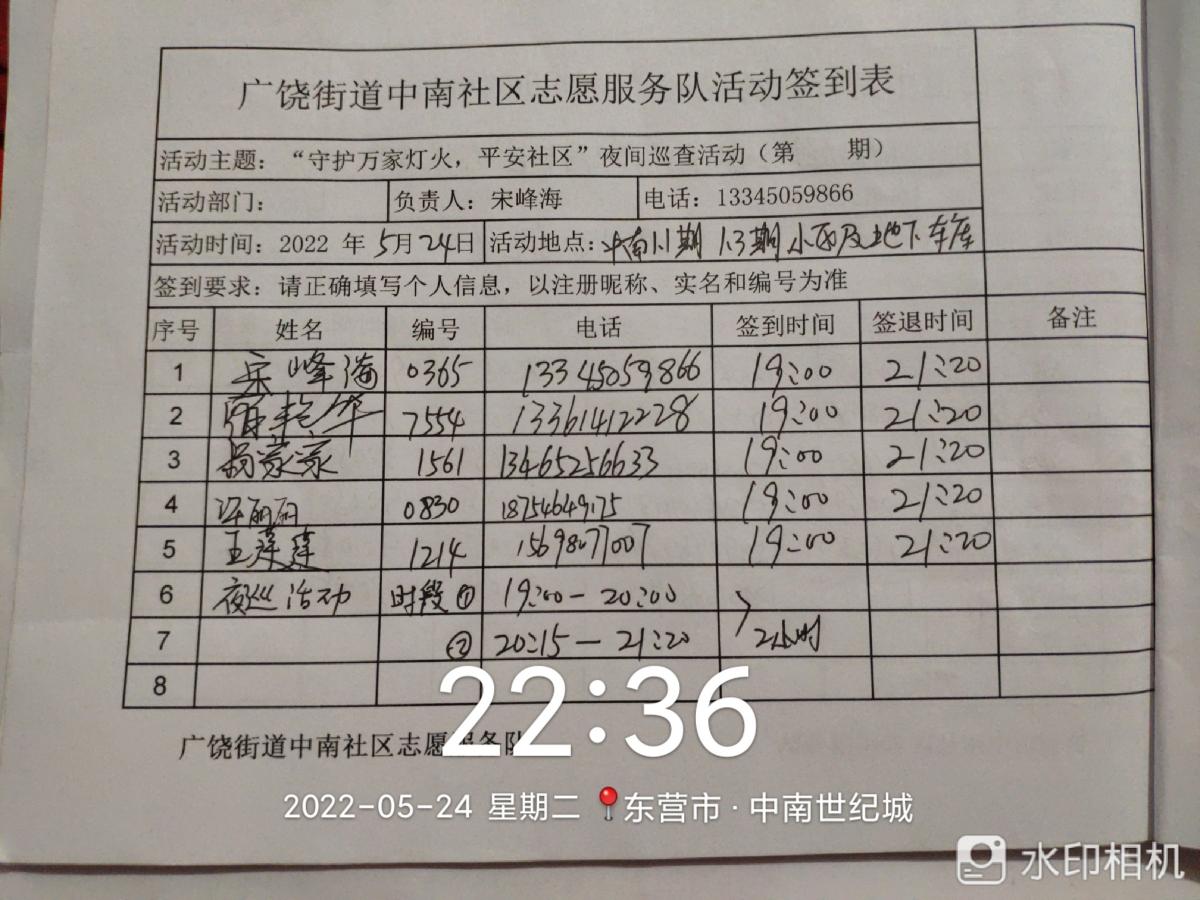 广饶街道中南社区志愿服务队活动签到表
活动主题：“守护万家灯火，平安社区”夜间巡查活动（第 期）
活动部门： 负责人：宋峰海 电话：13345059866
活动时间：2022 年 5月 24日 活动地点：中南 期 1.3期 小区及地下车库
签到要求：请正确填写个人信息，以注册昵称、实名和编号为准
序号 姓名 编号 电话 签到时间 签退时间 备注
1 宋峰海 0365 13345059866 19:00 21:20
2 华 7554 13361412228 19:00 21:20
3 杨蒙蒙 1561 13465256633 19:00 21:20
4 许丽丽 0830 18754649175 19:00 21:20
5 王莲莲 1214 15698077007 19:00 21:20
6 夜巡活动 时段① 19:00-20:00
7 ② 20:15-21:20 2小时
8
22:36
广饶街道中南社区志愿服务队
2022-05-24 星期二 东营市·中南世纪城
水印相机